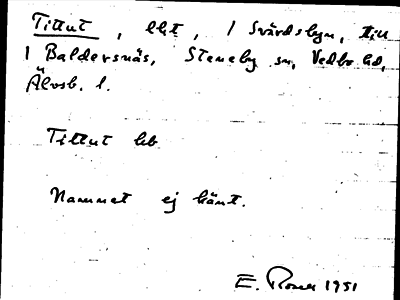 Tittut, lht, 1 Svärdsbyn, till
1 Baldersnäs, Steneby sn, Vedbo hd,
Älvsb. l.
Tittut hb
Namnet ej känt.
E. 1951